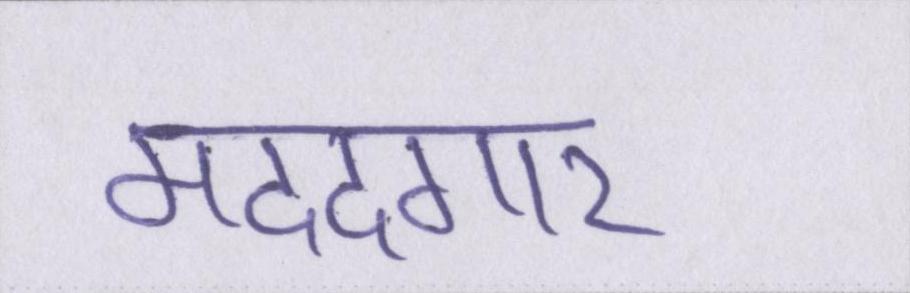 मददगार